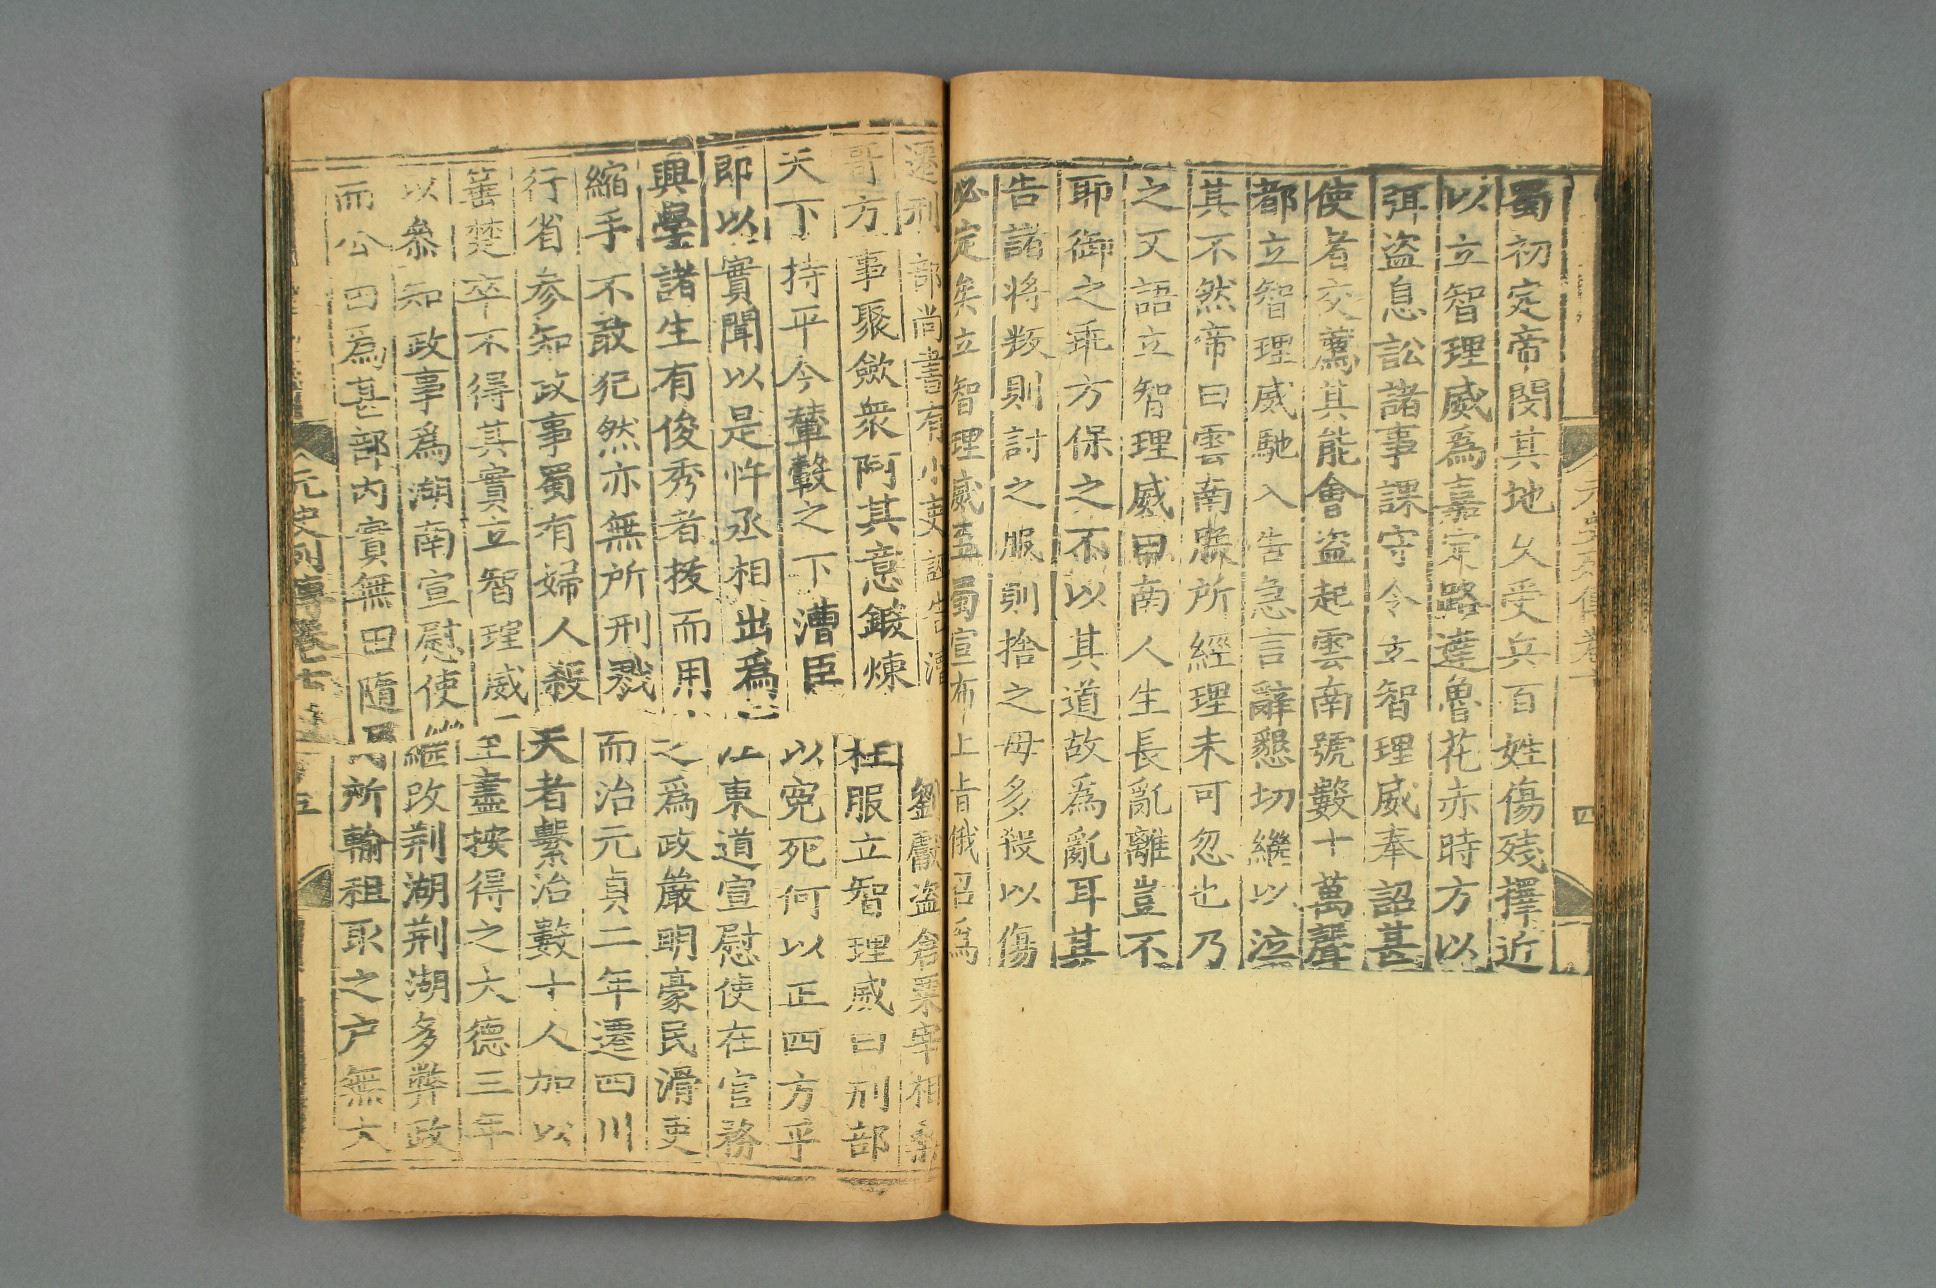 蜀初定帝閔其地久受兵百姓傷殘擇近
以立智理威爲嘉定路達魯花赤時方以
弭盗息訟諸事課守令立智理威奉詔甚
使者交薦其能會盗起雲南號數十萬聲
都立智理威馳入告急言辭懇切繼以泣
其不然帝曰雲南朕所經理未可忽也乃
之又語立智理威曰南人生長亂離豈不
耶御之乖方保之不以其道故爲亂耳其
告諸将叛則討之服則捨之毋多殺以傷
必定矣立智理威至蜀宣布上旨俄召爲
遷刑部尚書有小吏誣告漕 劉獻盗倉粟宰相桑
哥方事聚斂衆阿其意鍛煉 枉服立智理威曰刑部
天下持平今輦轂之下漕臣 以寃死何以正四方乎
即以實聞以是忤丞相出爲 江東道宣慰使在官務
興學諸生有俊秀者拔而用 之爲政嚴明豪民滑吏
縮手不敢犯然亦無所刑戮 而治元貞二年遷四川
行省参知政事蜀有婦人殺 夫者繫治數十人加以
箠楚卒不得其實立智理威 至盡按得之大德三年
以叅知政事爲湖南宣慰使 繼改荆湖荆湖多弊政
而公田爲甚部内實無田隨民 所輸租取之户無大
元史列傳卷七 五